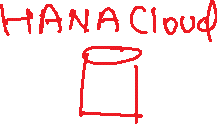 HANA Cloud